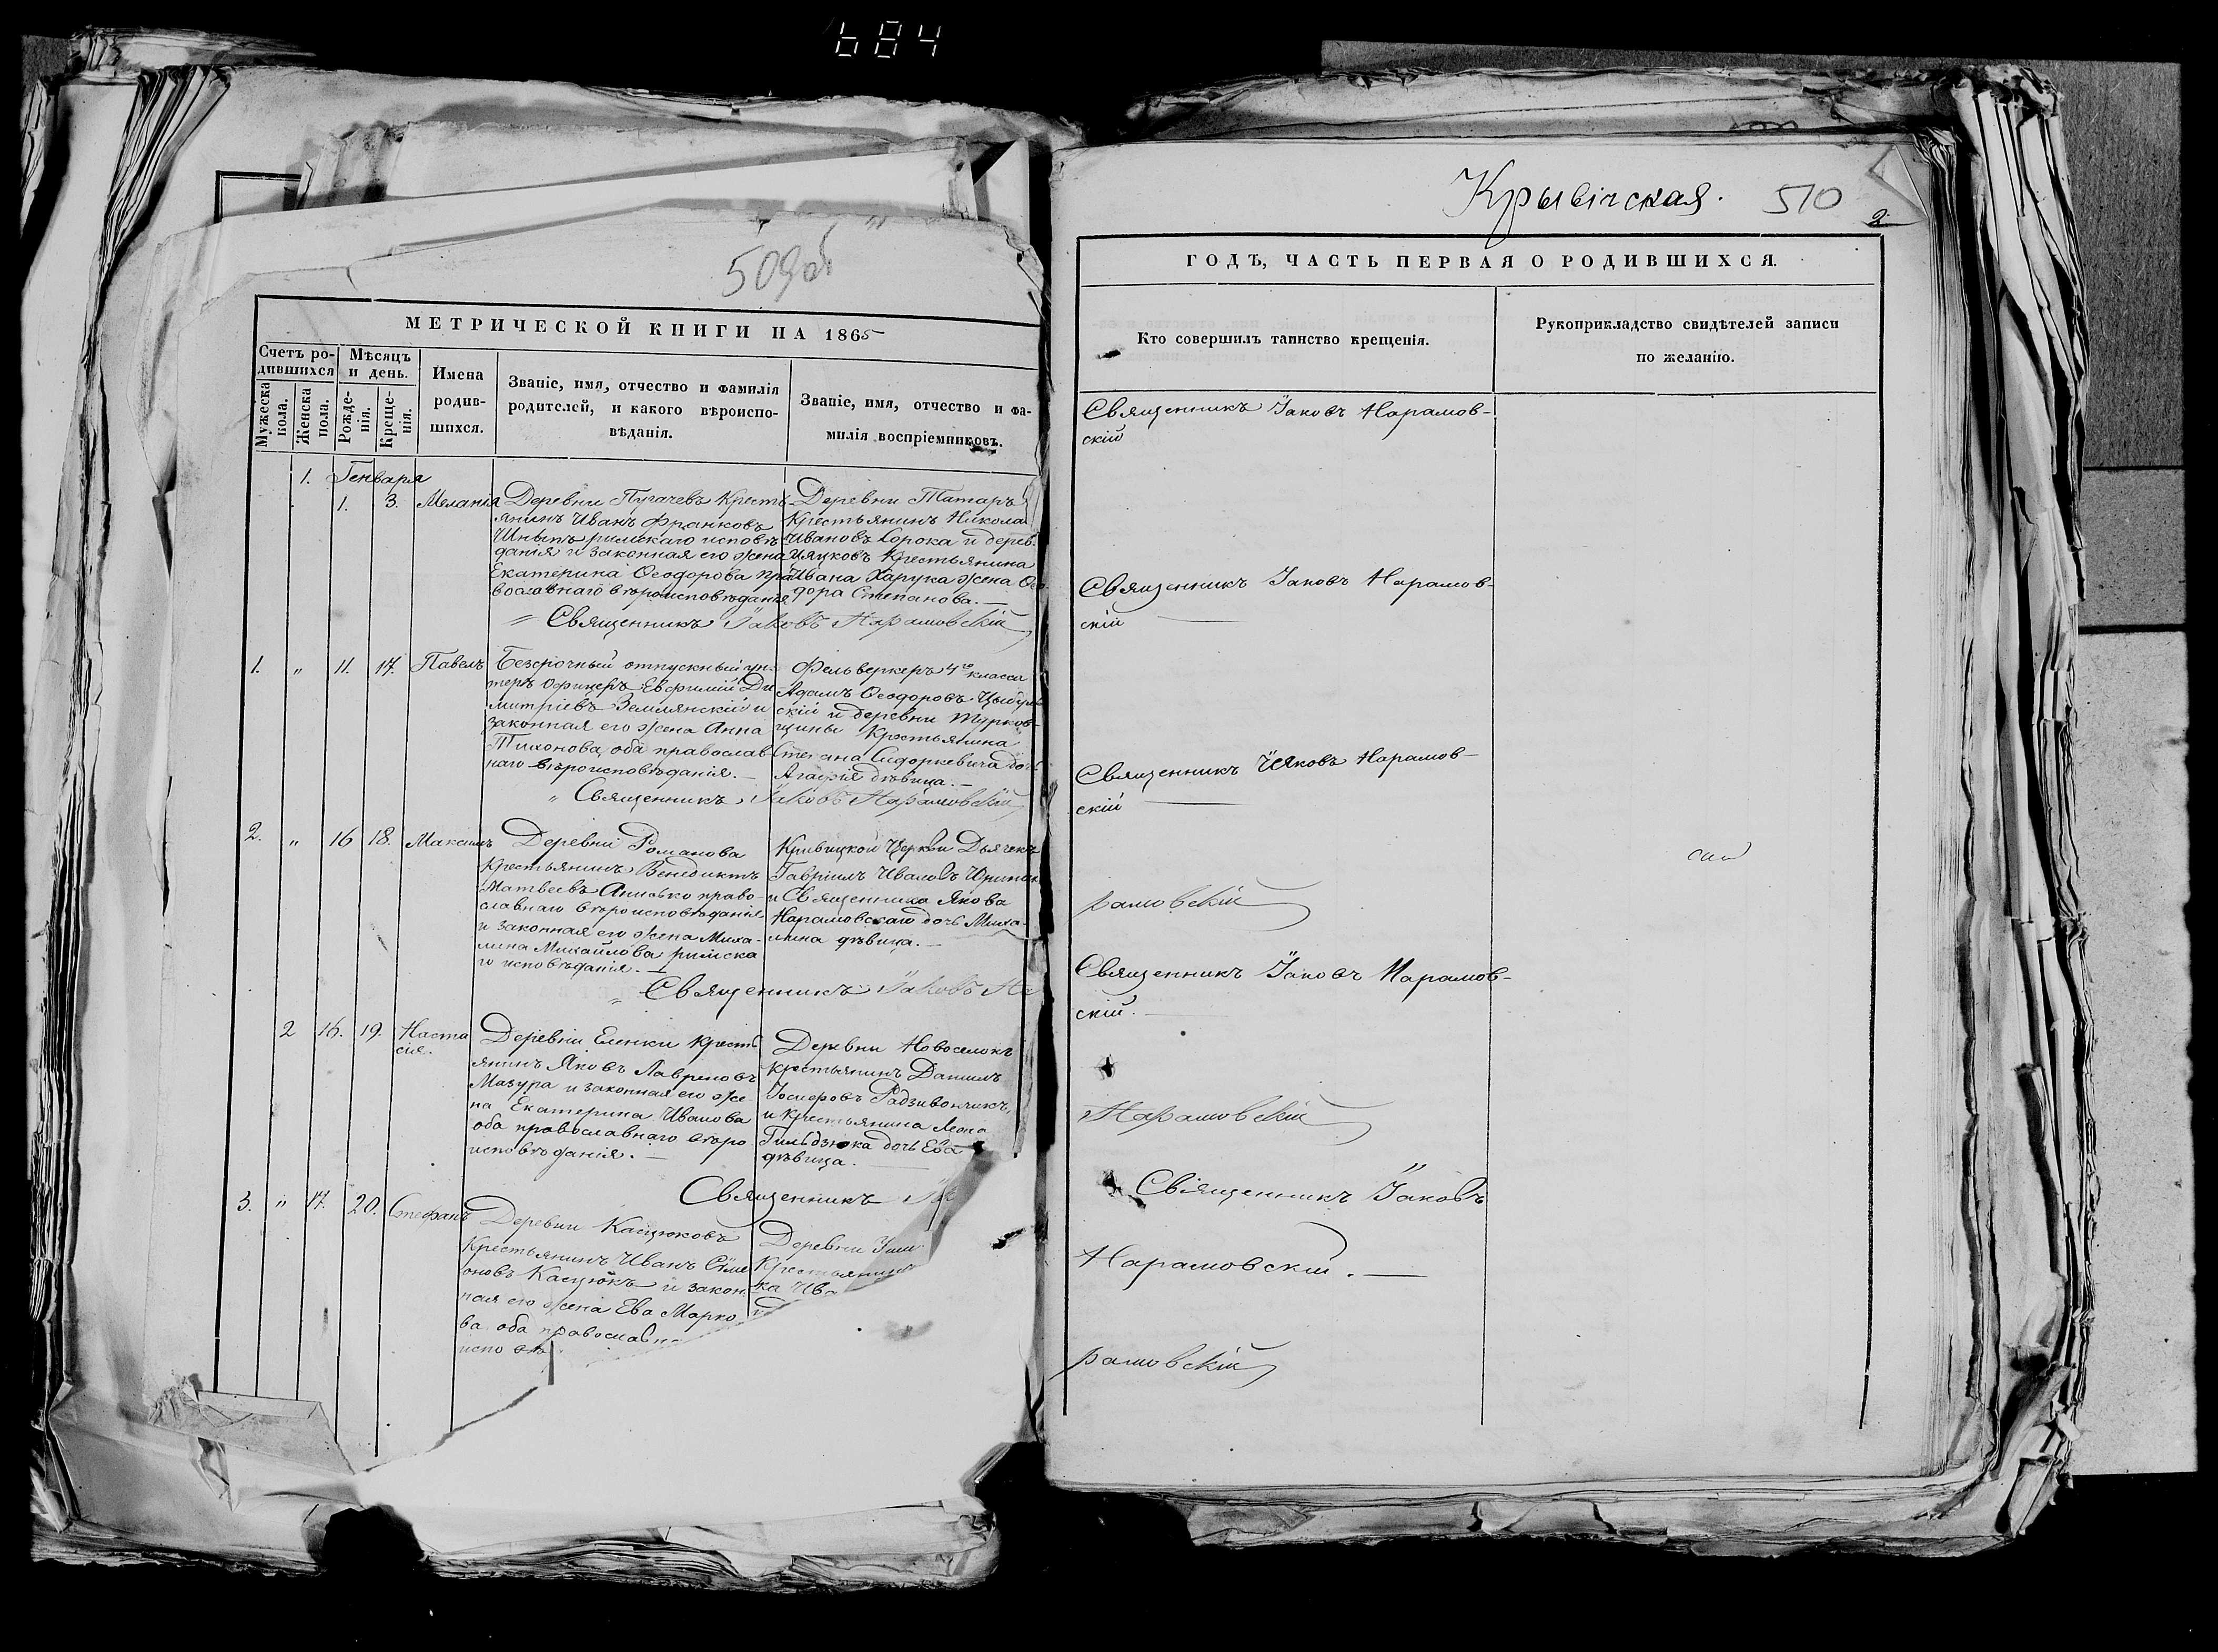 684
509об
МЕТРИЧЕСКОЙ КНИГИ НА 1865
Счетъ ро-
дившихся
Мужеска пола.
Женска пола.
Мѣсяцъ
и день.
Рожде-
нія.
Креще-
нія.
Имена
родив-
шихся.
Званіе, имя, отчество и фамилія
родителей, и какого вѣроиспо-
вѣданія.
Званіе, имя, отчество и фа-
милія воспріемниковъ.
1. Генваря
1. 3. Меланія
Деревни Пугачевъ Кресть-
янинъ Иванъ Франковъ
римскаго исповѣ
данія и законная его жена
Екатерина Ѳеодорова пра
вославнаго вѣроисповѣданія
Деревни Татаръ
Крестьянинъ Никола
Ивановъ Сорока и дерев.
Цяцковъ Крестьянина
Ивана Харука жена Ѳео
дора Степанова. —
Священникъ Іаковъ Нарамовскій
1. " 11. 17. Павелъ
Безсрочный отпускный ун-
теръ Офицеръ Евфимій Ди
митріевъ Землянскій и
законная его жена Анна
Тихонова, оба православ
наго вѣроисповѣданія. —
Фельверкеръ 4го класса
Адамъ Ѳеодоровъ
скій и деревни Турков-
щины Крестьянина
Степана Сидоркевича дочь
Агафія дѣвица. —
" Священникъ Іаковъ Нарамовскій
2. " 16 18. Максимъ
Деревни Романова
Крестьянинъ Венедиктъ
Матвеевъ Анисько право-
славнаго вѣроисповѣданія
и законная его жена Миха-
лина Михайлова римска
го исповѣданія. —
Кривицкой Церкви Дьячекъ
Гавріилъ Ивановъ
и Священника Якова
Нарамовскаго дочь Миха-
лина дѣвица. —
" Священникъ Іаковъ На
2 16. 19. Наста
сія.
Деревни Еленки Кресть
янинъ Яковъ Лавреновъ
Мазура и законная его же
на Екатерина Иванова
оба православнаго вѣро
исповѣданія. —
Деревни Новоселокъ
Крестьянинъ Даніилъ
Іосифовъ Радзивончикъ,
и крестьянина Леона
Гильдзюка дочь Ева
дѣвица. —
Священникъ Іа
3. " 17. 20. Стефанъ
Деревни Касцюковъ
Крестьянинъ Иванъ Симе
оновъ Касцюкъ и закон.
ная его жена Ева Марко
ва оба православна
исповѣ
Деревни
Крестьянинъ
ка Ива
Крывічская. 510
2
ГОДЪ, ЧАСТЬ ПЕРВАЯ О РОДИВШИХСЯ.
Кто совершилъ таинство крещенія.
Рукоприкладство свидѣтелей записи
по желанію.
Священникъ Іаковъ Нарамов-
скій
Священникъ Іаковъ Нарамов-
скій —
Священникъ Іяковъ Нарамов-
скій —
рамовскій
Священникъ Іаковъ Нарамов-
скій. —
Нарамовскій
Священникъ Іаковъ
Нарамовскій. —
рамовскій